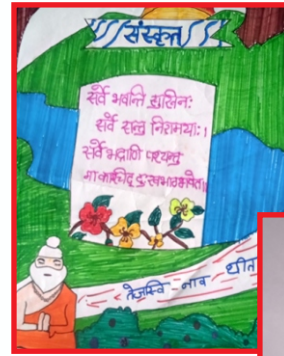 संस्कृत
सर्वे भवन्ति सुखिनः
सर्वे सन्तु निरामयाः।
सर्वे भद्राणि पश्यन्तु
मा कश्चिद्
तेजस्वि नाव धीत